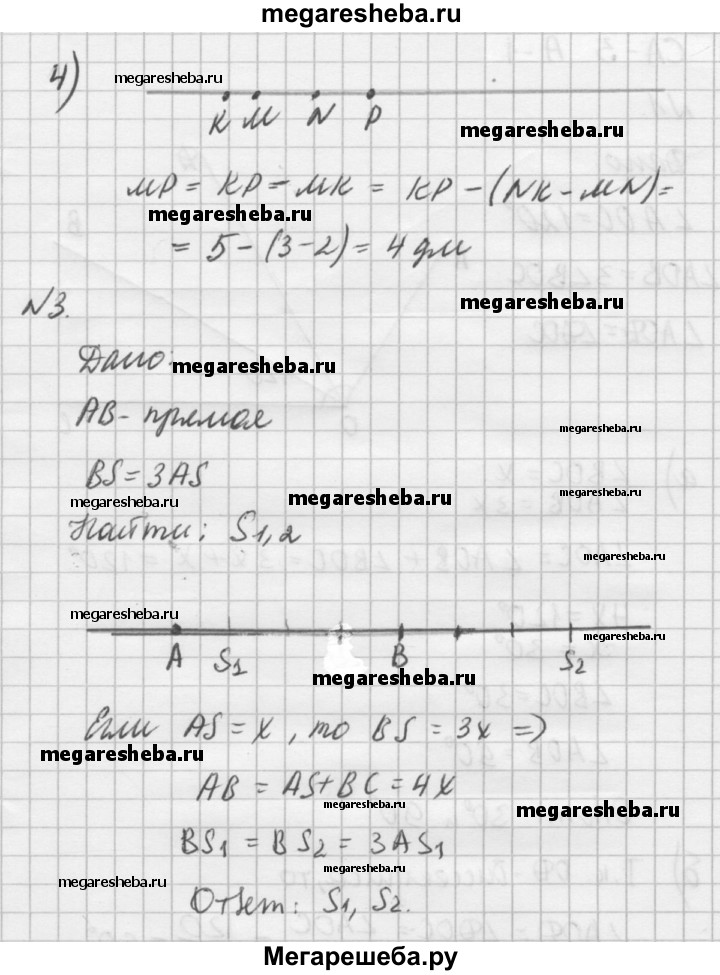 megaresheba.ru
4)
megaresheba.ru
K M N P
megaresheba.ru
MP = KP - MK = KP - (NK - MN) =
megaresheba.ru
= 5 - (3 - 2) = 4 дм
N3.
megaresheba.ru
Дано:
megaresheba.ru
AB - прямая
megaresheba.ru
BS = 3AS
megaresheba.ru
megaresheba.ru
megaresheba.ru
Найти: S1,2
megaresheba.ru
megaresheba.ru
megaresheba.ru
A S1 B S2
megaresheba.ru
Если AS = x, то BS = 3x =>
megaresheba.ru
AB = AS + BC = 4x
megaresheba.ru
megaresheba.ru
BS1 = BS2 = 3AS1
megaresheba.ru
megaresheba.ru
Ответ: S1, S2.
Мегарешеба.ру